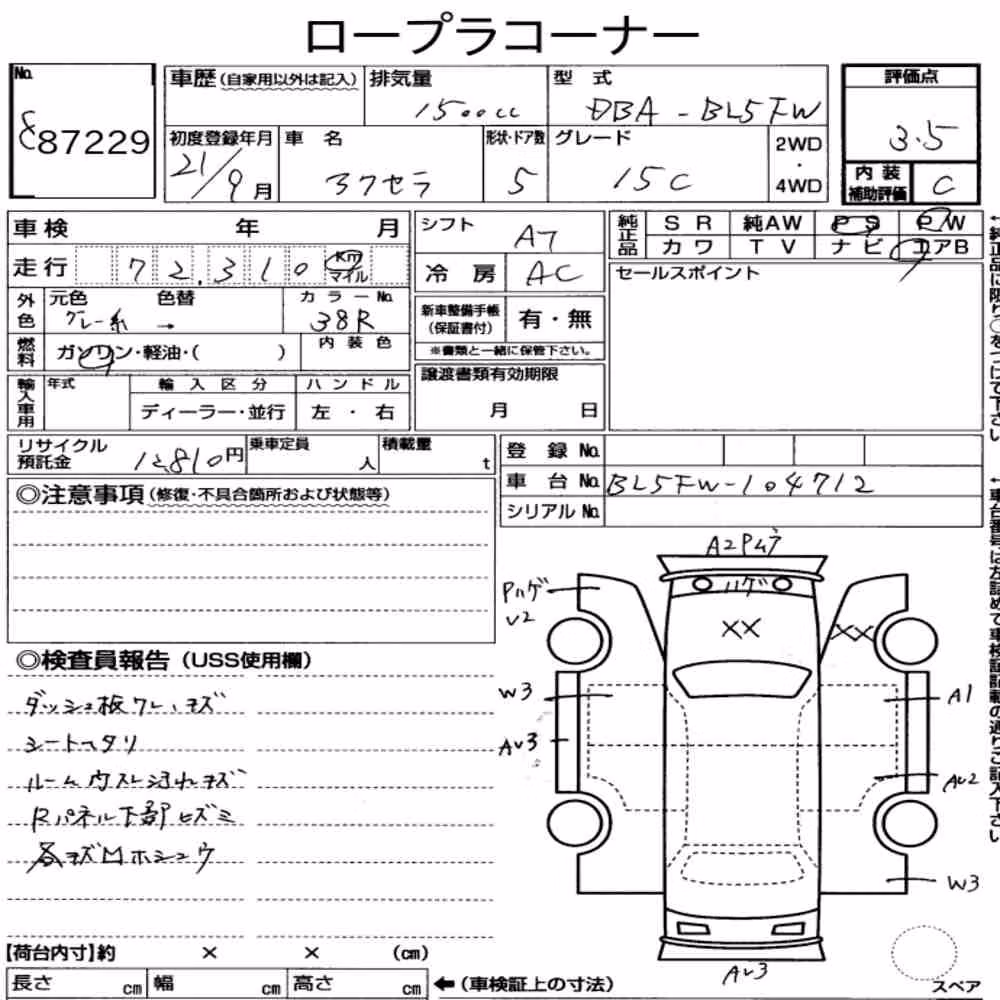 ロープラコーナー
No.
87229
車歴(自家用以外は記入)
排気量
1500cc
型 式
DBA-BL5FW
評価点
3.5
初度登録年月
21/9月
車 名
アクセラ
形状・ドア数
5
グレード
15C
2WD
・
4WD
内装
補助評価
C
車検 年 月
シフト
AT
純正品
SR 純AW PS PW
カワ TV ナビ エアB
走行
72,310 Km マイル
冷房
AC
セールスポイント
外色
元色 色替
グレー系 →
カラーNo.
38R
新車整備手帳
(保証書付)
有・無
※書類と一緒に保管下さい。
燃料
ガソリン・軽油・( )
内装色
譲渡書類有効期限
月 日
輸入車用
年式
輸入区分
ディーラー・並行
ハンドル
左・右
リサイクル
預託金
12,810円
乗車定員
人
積載量
t
登録No.
車台No. BL5FW-104712
シリアルNo.
◎注意事項(修復・不具合箇所および状態等)
A2Pムラ
ハゲ
Pハゲ
V2
XX
XX
◎検査員報告(USS使用欄)
ダッシュ板ワレ、キズ
シートヘタリ
ルーム内スレ汚れキズ
Rパネル下部ヒズミ
各キズMホシュウ
W3
A1
AV3
AV2
W3
AV3
【荷台内寸】約 × × (cm)
長さ cm 幅 cm 高さ cm
←(車検証上の寸法)
スペア
←純正品に限り○をつけて下さい
←車台番号は左詰めで車検証記載の通りご記入下さい